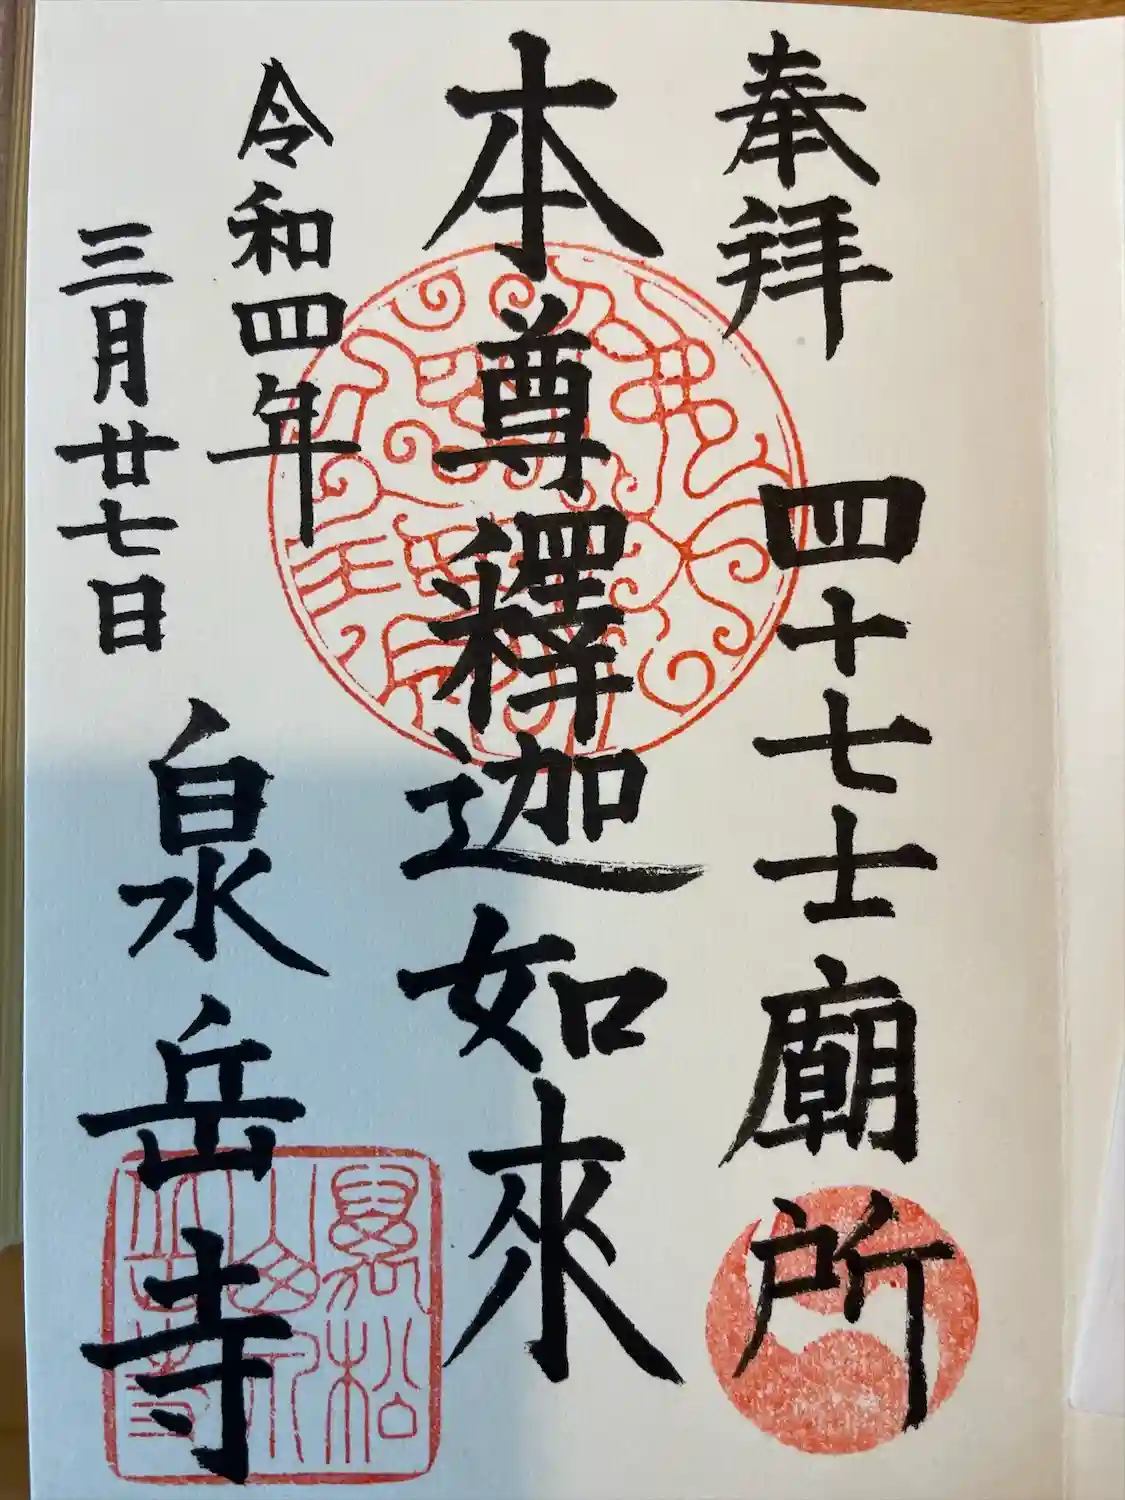 奉拜
四十七士廟所
本尊釋迦如來
令和四年
三月廿七日
泉岳寺